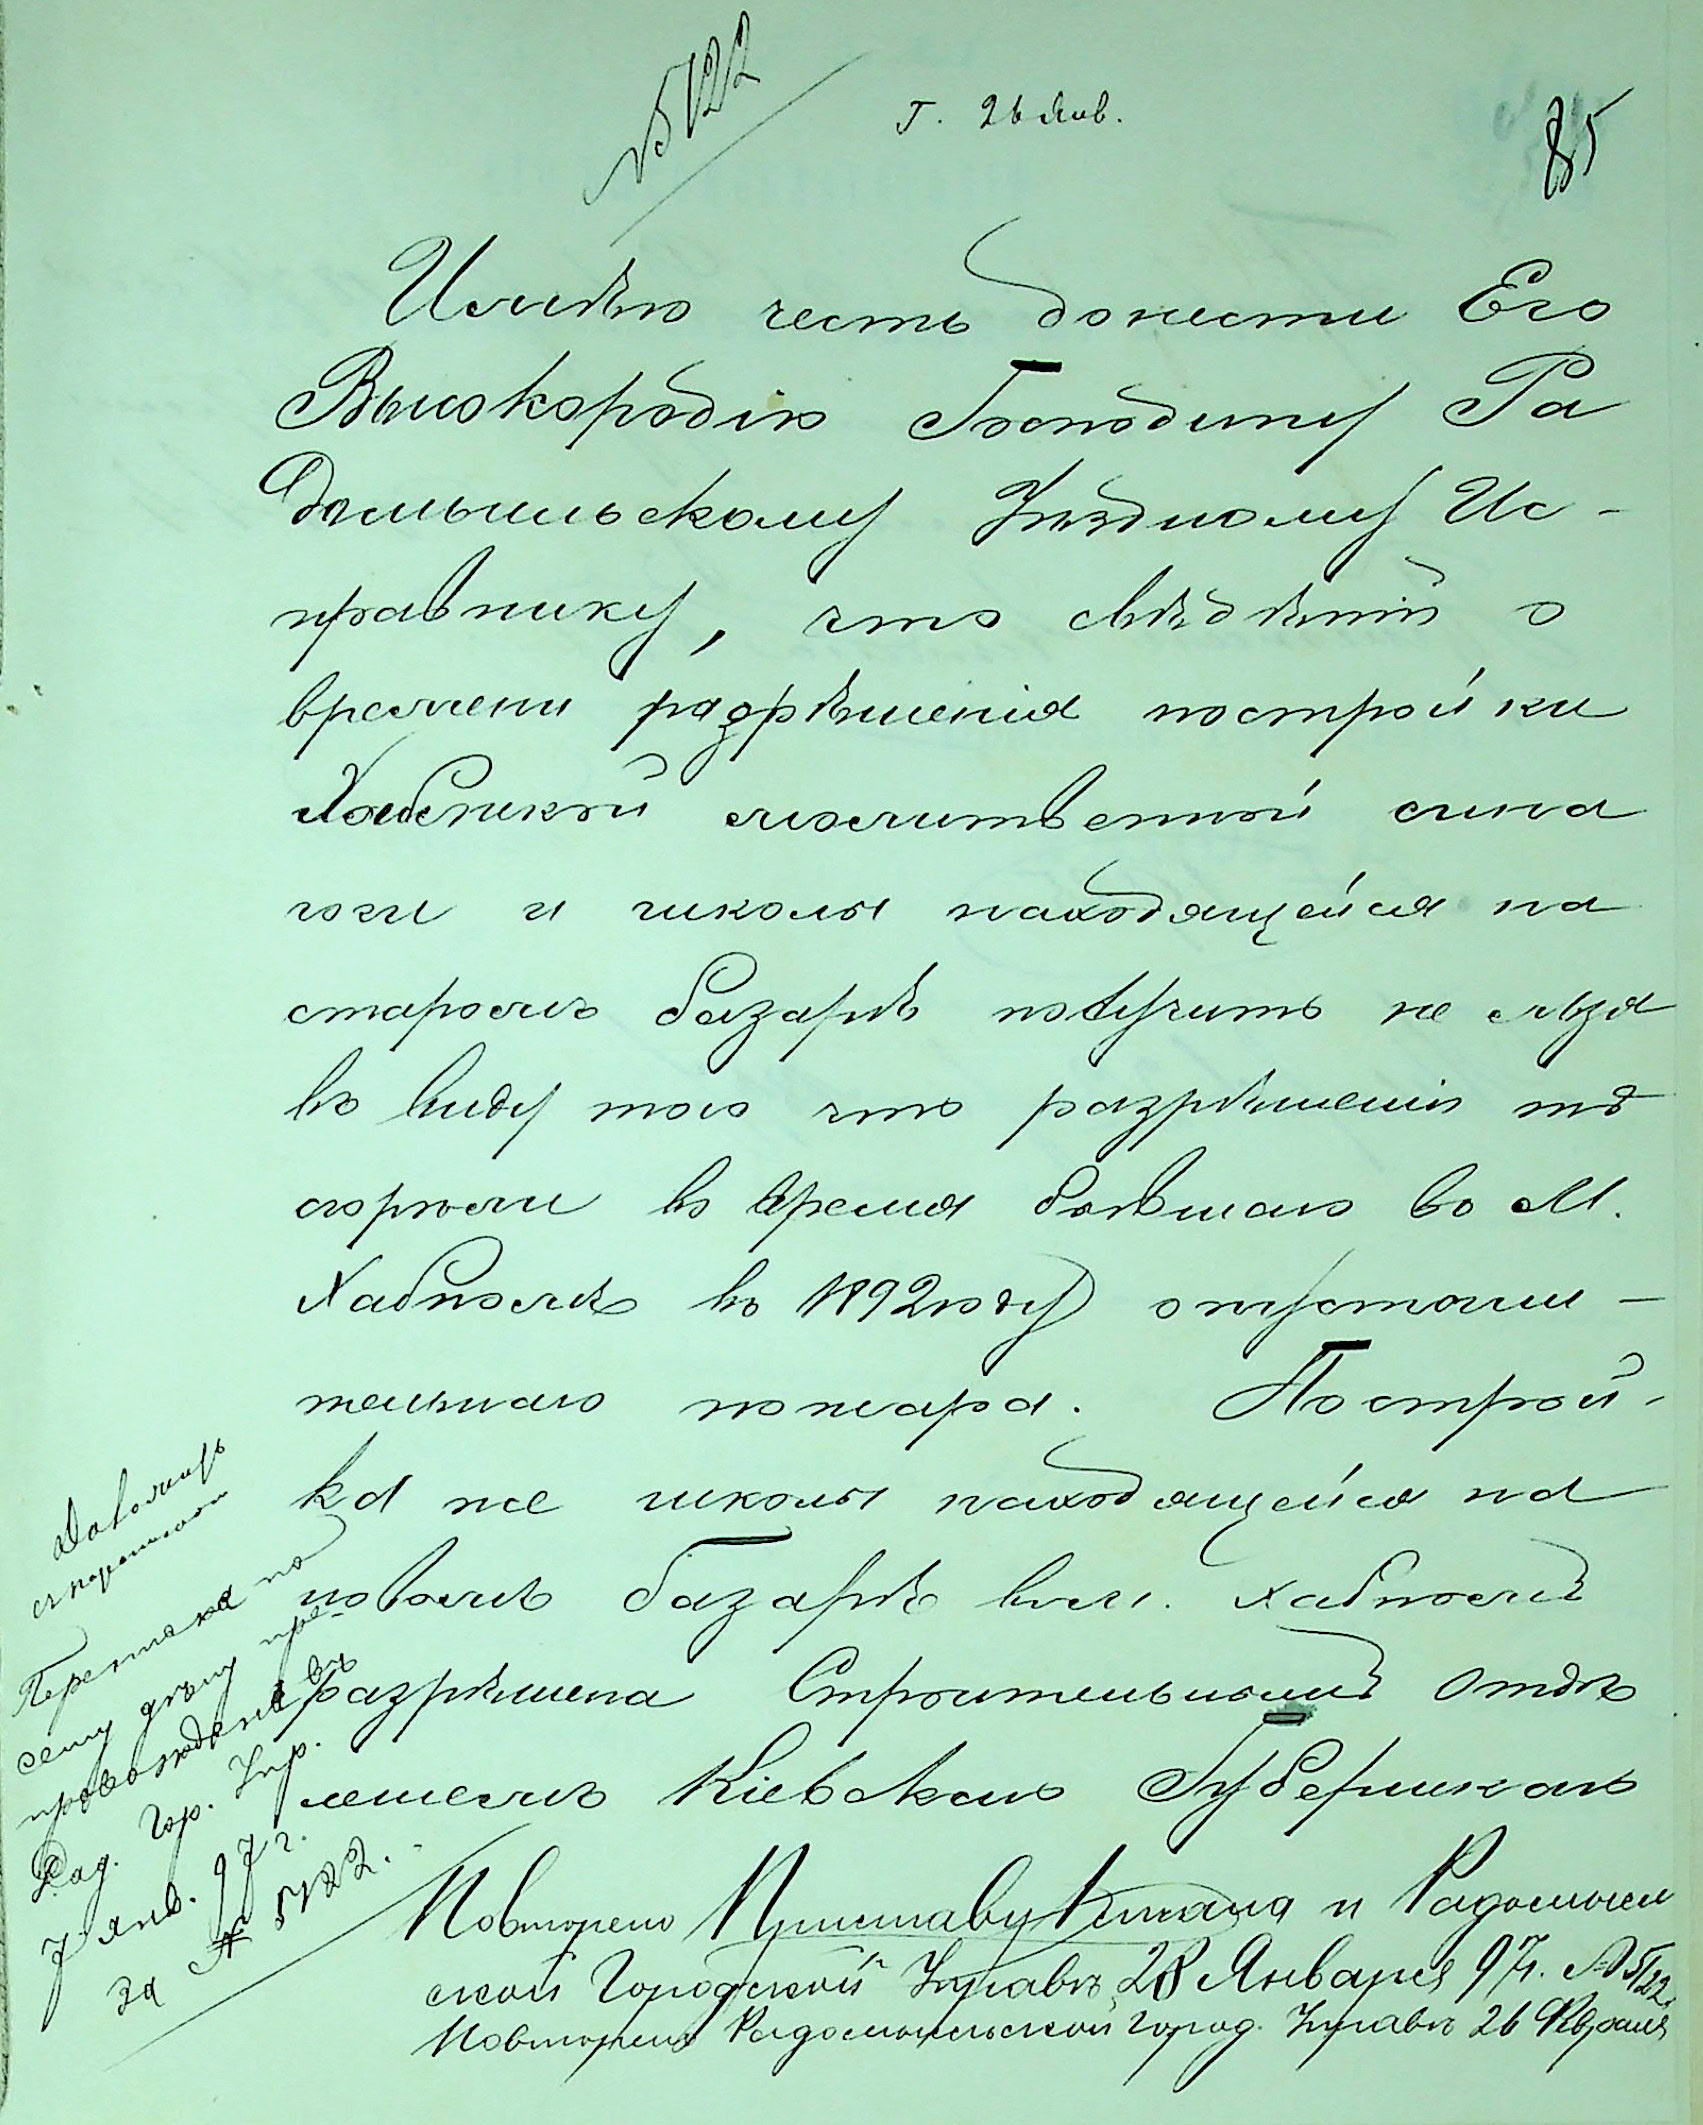 № 5122
Г. 26 Янв.
85
Имѣю честь донести Его
Высокородію Господину Ра
домысльскому Уѣздному Ис-
правнику, что свѣдѣній о
времени разрѣшенія постройки
Хабенской молитвенной сина
гоги и школы находящейся на
старомъ базарѣ получить не льзя
въ виду того что разрѣшенія тѣ
сгорѣли въ время бывшаго во М.
Хабномъ въ 1892 году опустоши-
тельнаго пожара. Построй-
ка же школы находящейся на
новомъ базарѣ въ м. Хабномъ
разрѣшена Строительнымъ Отдѣ
леніемъ Кіевскаго Губернскаго
Переписка по
сему дѣлу пре-
провождена въ
Рад. Гор. Упр.
7 янв. 97 г.
за № 5122.
Повторено Приставу стана и Радомысль
ской Городской Управѣ 28 Января 97 г. № 5122
Повторено Радомысльской Город. Управѣ 26 Февраля